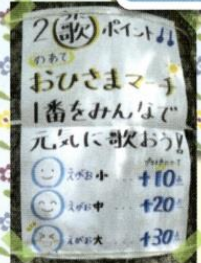 うた
2歌 ポイント♪♪
おひさまマーチ
1番をみんなで
元気に歌おう!!
えがお小 … +10点
えがお中 … +20点
えがお大 … +30点